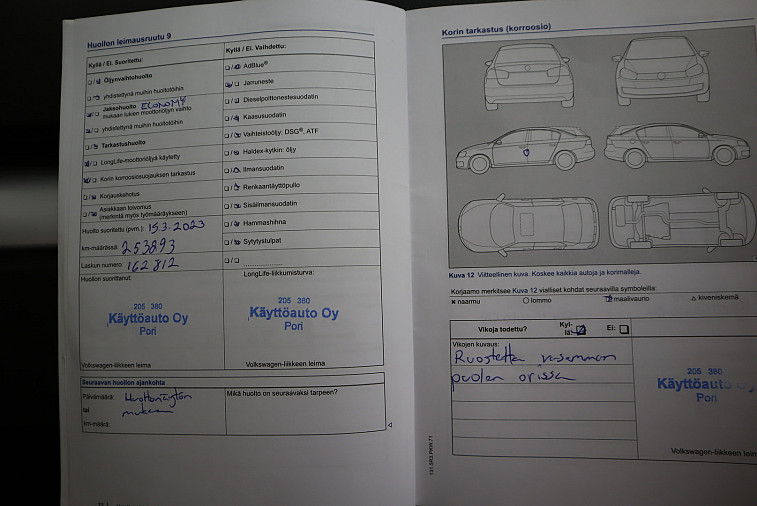 Huollon leimausruutu 9
Kyllä / Ei. Suoritettu:
Öljynvaihtohuolto
yhdistettynä muihin huoltotöihin
Jaksohuolto ECONOMY
mukaan lukien moottoriöljyn vaihto
yhdistettynä muihin huoltotöihin
Tarkastushuolto
LongLife-moottoriöljyä käytetty
Korin korroosiosuojauksen tarkastus
Korjauskehotus
Asiakkaan toivomus
(merkintä myös työmääräykseen)
Huolto suoritettu (pvm.): 15.3.2023
km-määrässä: 253893
Laskun numero: 162812
Huollon suorittanut:
205 380
Käyttöauto Oy
Pori
Volkswagen-liikkeen leima
Kyllä / Ei. Vaihdettu:
AdBlue®
Jarruneste
Dieselpolttonestesuodatin
Kaasusuodatin
Vaihteistoöljy: DSG®, ATF
Haldex-kytkin: öljy
Ilmansuodatin
Renkaantäyttöpullo
Sisäilmansuodatin
Hammashihna
Sytytystulpat
LongLife-liikkumisturva:
205 380
Käyttöauto Oy
Pori
Volkswagen-liikkeen leima
Seuraavan huollon ajankohta
Päivämäärä: Huoltonäytön
tai mukaan
km-määrä:
Mikä huolto on seuraavaksi tarpeen?
Korin tarkastus (korroosio)
Kuva 12 Viitteellinen kuva. Koskee kaikkia autoja ja korimalleja.
Korjaamo merkitsee Kuva 12 vialliset kohdat seuraavilla symboleilla:
× naarmu ○ lommo □ maalivaurio △ kiveniskemä
Vikoja todettu? Kyl-
lä: Ei:
Vikojen kuvaus:
Ruostetta vasemman
puolen ovissa
205 380
Käyttöauto Oy
Pori
Volkswagen-liikkeen leim